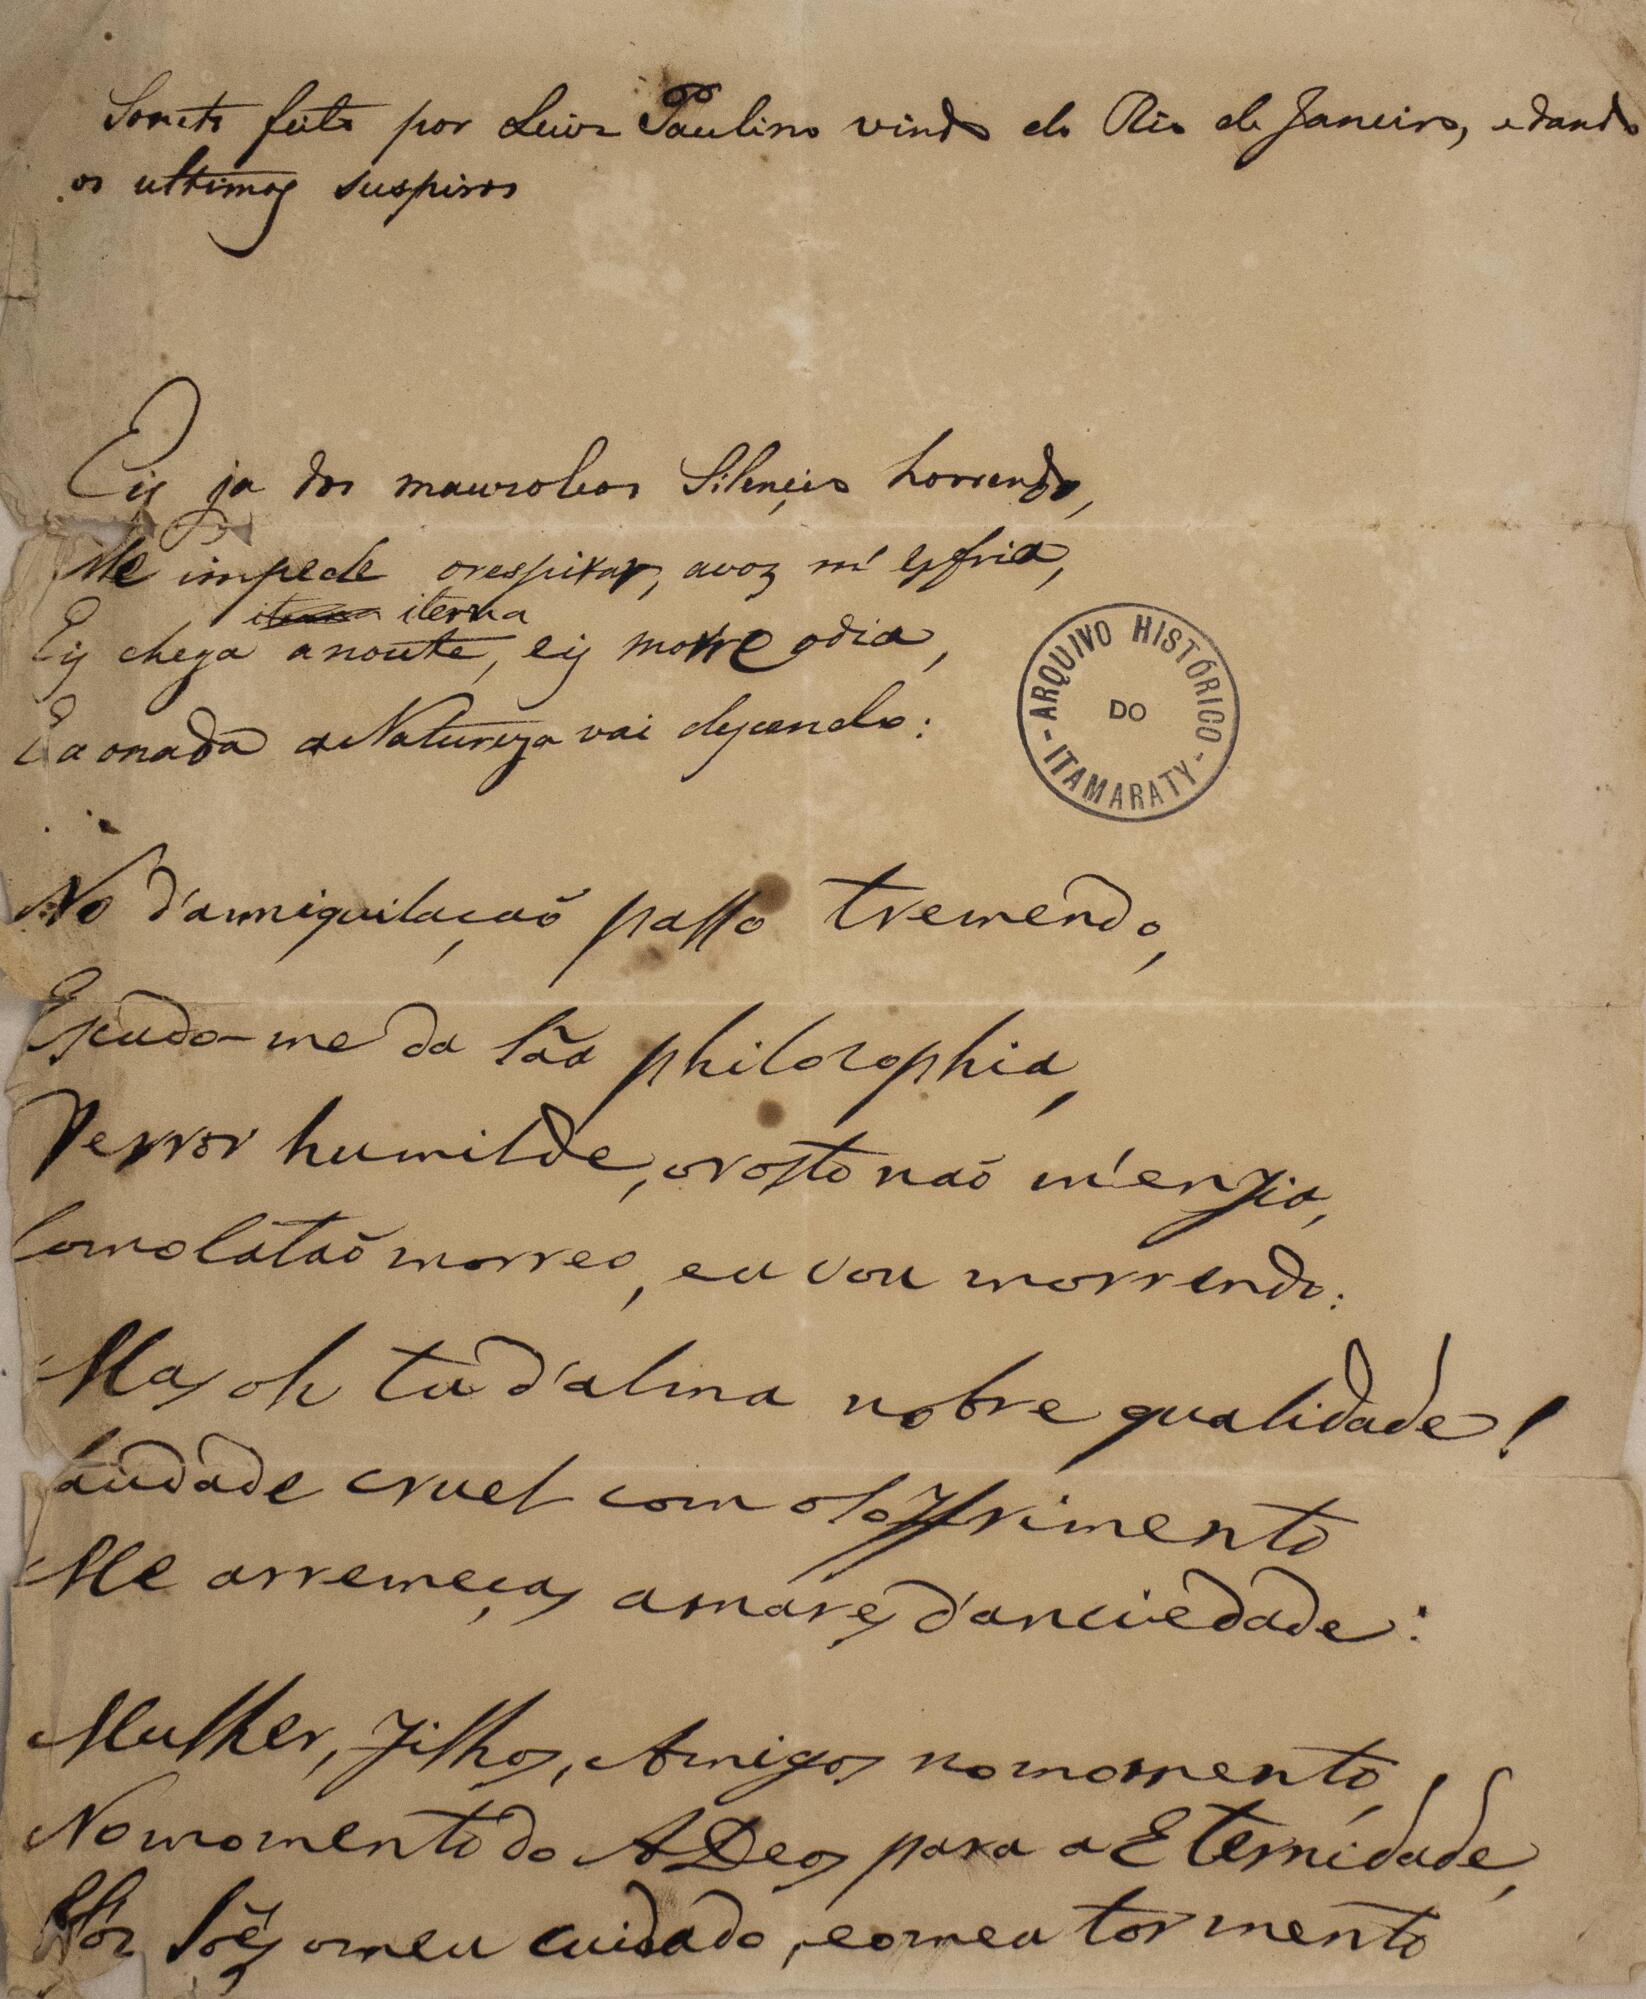 Soneto feito por Luiz Paulino vindo do Rio de Janeiro, e dando
os ultimos suspiros
Eis ja dos mauzoleos Silençio horrendo,
Me impede orespirar, avoz m' esfria,
iterna
Eis chega anoute, eis morre odia,
E a onada a Natureza vai descendo:
ARQUIVO HISTÓRICO
DO
- ITAMARATY -
No d'anniquilaçaõ passo tremendo,
Escudo-me da Sãa philosophia,
Terror humilde, orosto naõ m'enfia,
Como Cataõ morreo, eu vou morrendo:
Mas oh tu d'alma nobre qualidade!
Saudade cruel com o soffrimento
Me arremeças amares d'anciedade:
Mulher, filhos, Amigos nomomento,
Nomomento do ADeos para a Eternidade,
Vós Sões omeu cuidado, eomeu tormento